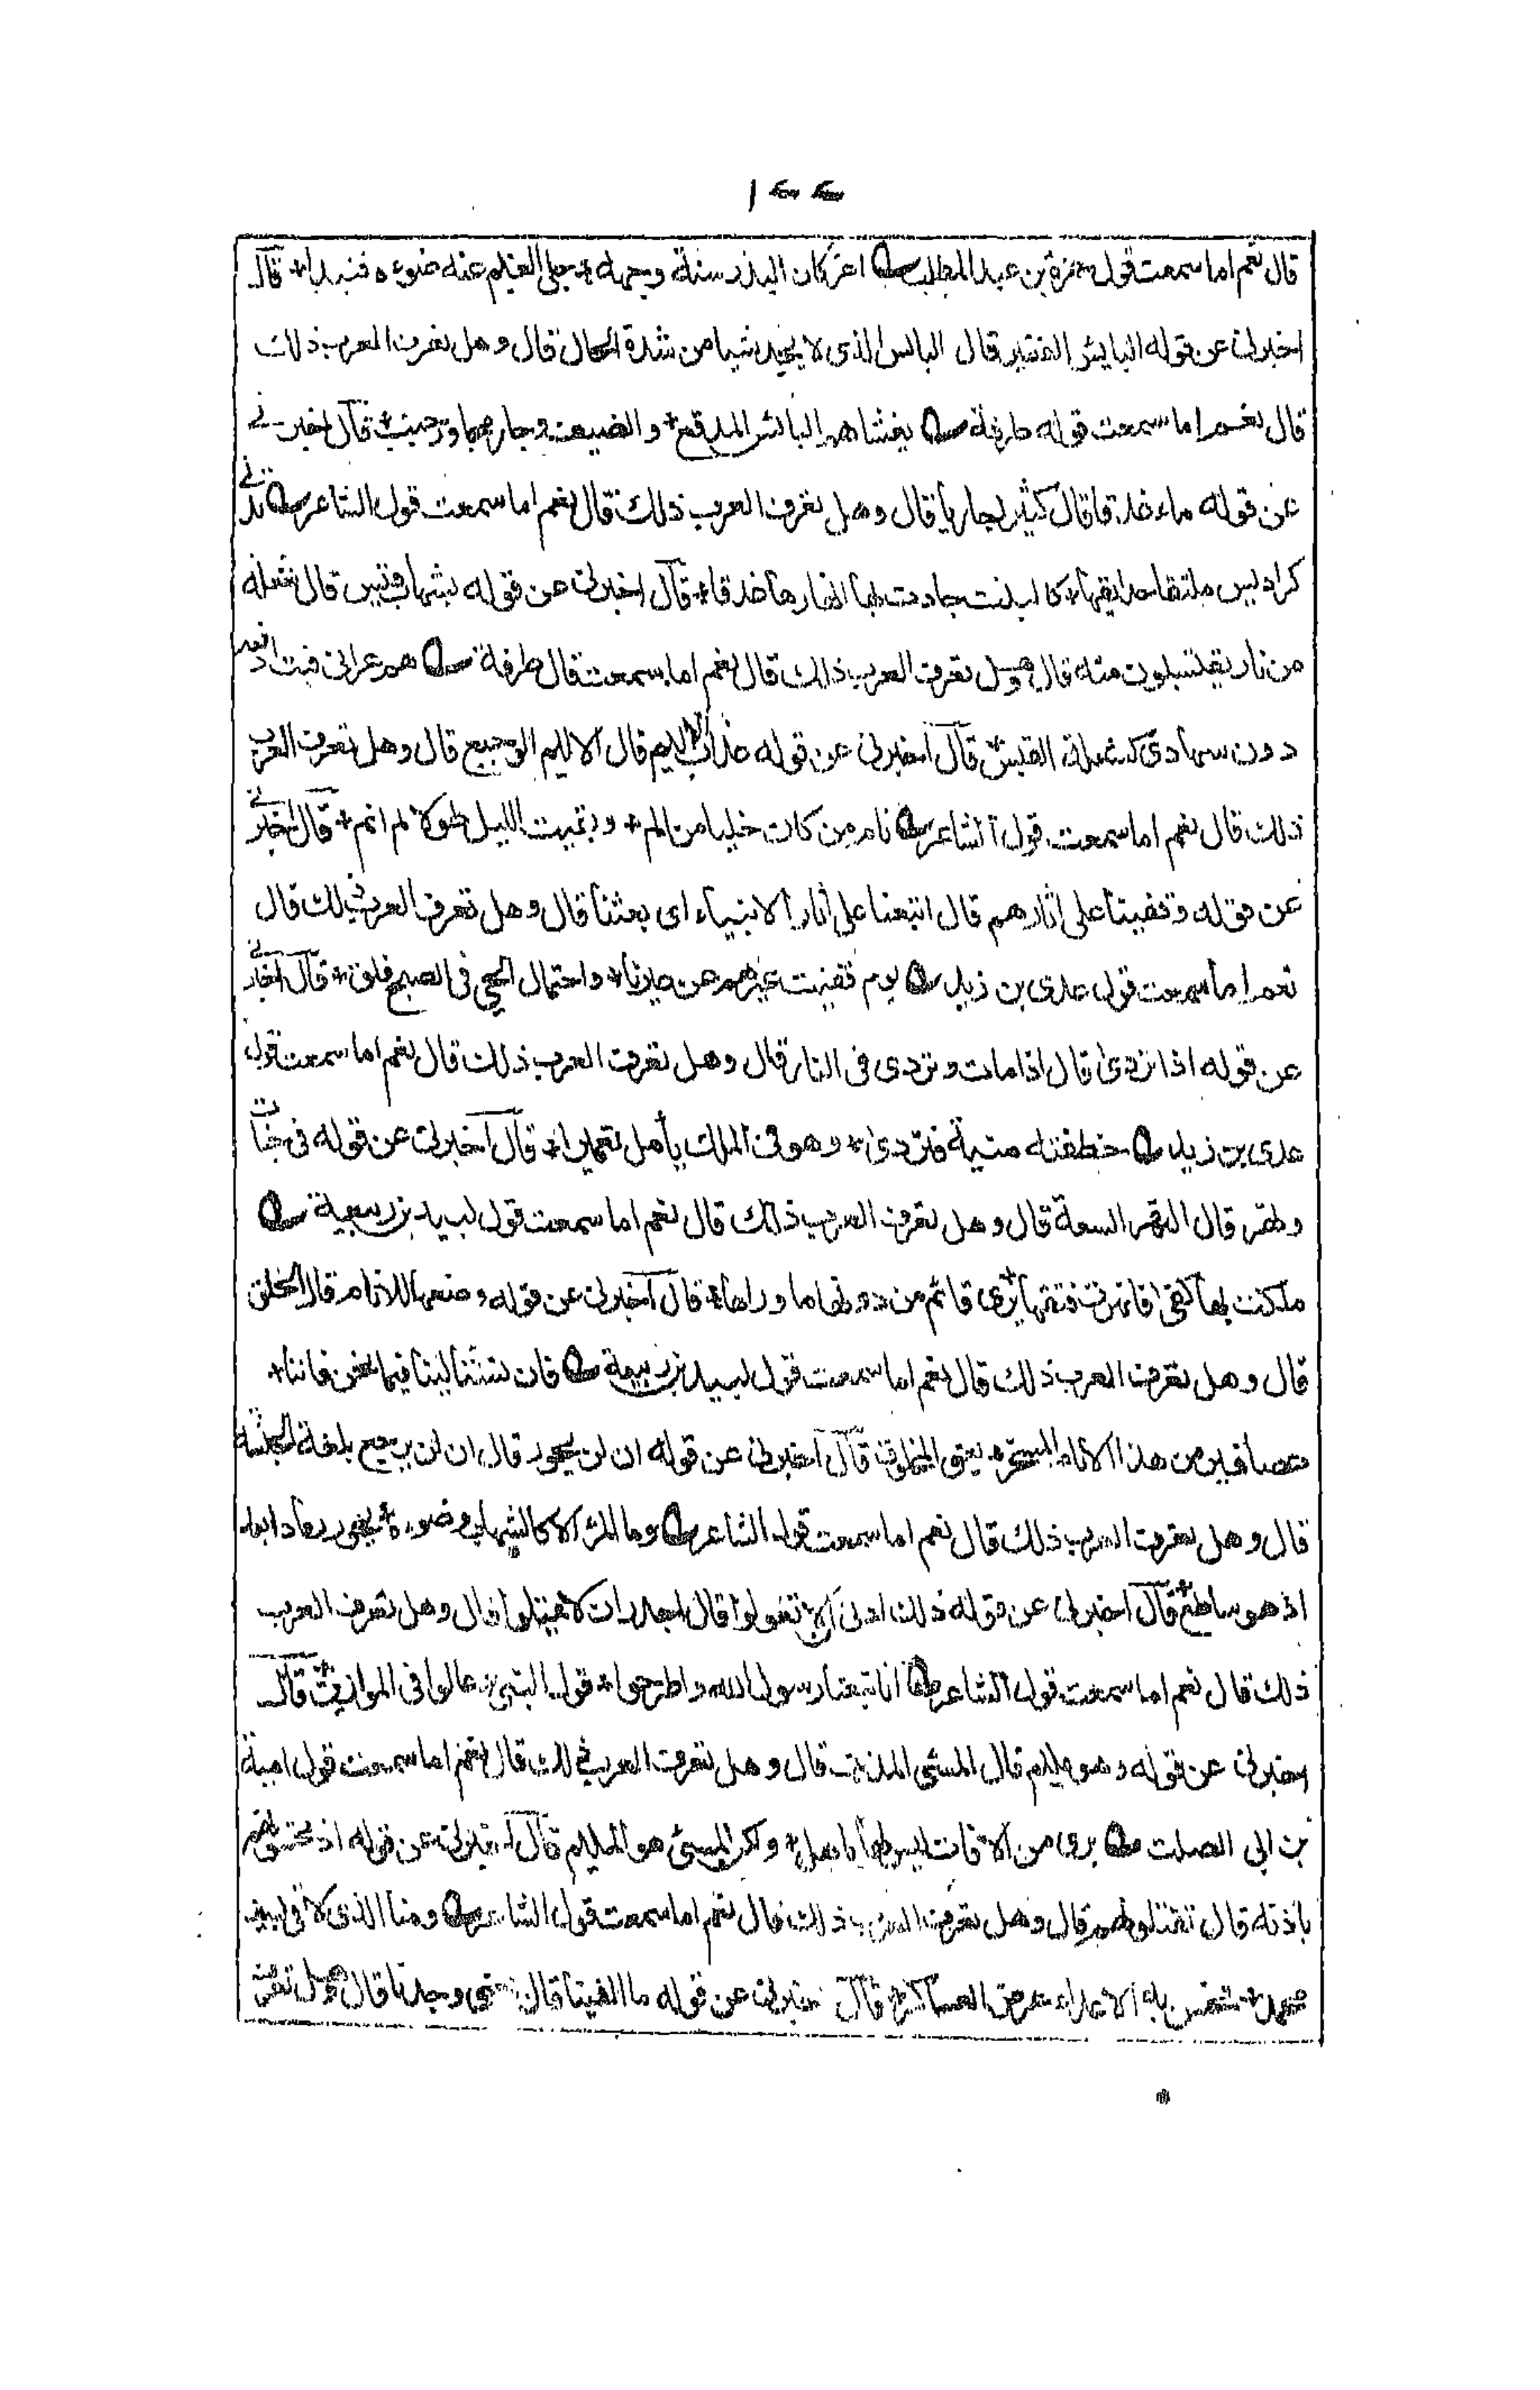 ١٤٤
قال نعم اما سمعت قول حمزة بن عبد المطلب اغر كان البدر سنة وجهه * جلى الغيم عنه ضوءه فتبددا * قال
اخبرنى عن قوله البايس الفقير قال البايس الذى لا يجد شيا من شدة الحال قال وهل تعرف العرب ذلك
قال نعم اما سمعت قول طرفة يغشاهم البائس المدقع * والضيف وجار مجاور جنب * قال اخبرنى
عن قوله ماء غدقا قال كثيرا جاريا قال وهل تعرف العرب ذلك قال نعم اما سمعت قول الشاعر تدنى
كراديس ملتفا حدايقها * كالنبت جادت بها انهارها غدقا * قال اخبرنى عن قوله بشهاب قبس قال شعلة
من نار يقتبسون منه قال وهل تعرف العرب ذلك قال نعم اما سمعت قال طرفة هم عرانى فبت ادفعه
دون سهادى كشعلة القبس * قال اخبرنى عن قوله عذاب اليم قال الاليم الوجيع قال وهل تعرف العرب
ذلك قال نعم اما سمعت قول الشاعر نام من كان خليا من الم * وبقيت الليل طولا لم انم * قال اخبرنى
عن قوله وقفينا على اثارهم قال اتبعنا على اثار الانبياء اى بعثنا قال وهل تعرف العرب ذلك قال
نعم اما سمعت قول عدى بن زيد يوم قفيت عيرهم من عيرنا * واحتمال الحى فى الصبح فلق * قال اخبرنى
عن قوله اذا تردى قال اذا مات وتردى فى النار قال وهل تعرف العرب ذلك قال نعم اما سمعت قول
عدى بن زيد خطفته منية فتردى * وهو فى الملك يأمل تعميرا * قال اخبرنى عن قوله فى جنات
ونهر قال النهر السعة قال وهل تعرف العرب ذلك قال نعم اما سمعت قول لبيد بن ربيعة
ملكت بها كفى فانهرت فتقها * يرى قائم من دونها ما وراها * قال اخبرنى عن قوله وضعها للانام قال الخلق
قال وهل تعرف العرب ذلك قال نعم اما سمعت قول لبيد بن ربيعة فان تسئلينا فيما نحن فاننا *
عصافير من هذا الانام المسحر * يعنى المخلوق قال اخبرنى عن قوله ان لن يحور قال ان لن يرجع بلغة الحبشة
قال وهل تعرف العرب ذلك قال نعم اما سمعت قول الشاعر وما المرء الا كالشهاب وضوءه * يحور رمادا بعد
اذ هو ساطع * قال اخبرنى عن قوله ذلك ادنى الا تعولوا قال اجدر ان لا تميلوا قال وهل تعرف العرب
ذلك قال نعم اما سمعت قول الشاعر انا تبعنا رسول الله واطرحوا * قول النبى وعالوا فى الموازين * قال
اخبرنى عن قوله وهو مليم قال المسئ المذنب قال وهل تعرف العرب ذلك قال نعم اما سمعت قول امية
بن ابى الصلت برى من الآفات ليس لها باهل * ولكن المسئ هو المليم قال اخبرنى عن قوله اذ تحسونهم
باذنه قال تقتلونهم قال وهل تعرف العرب ذلك قال نعم اما سمعت قول الشاعر ومنا الذى لاقى بسيف
محمد * فحس به الاعداء عرض العساكر * قال اخبرنى عن قوله ما الفينا قال يعنى وجدنا قال وهل تعرف